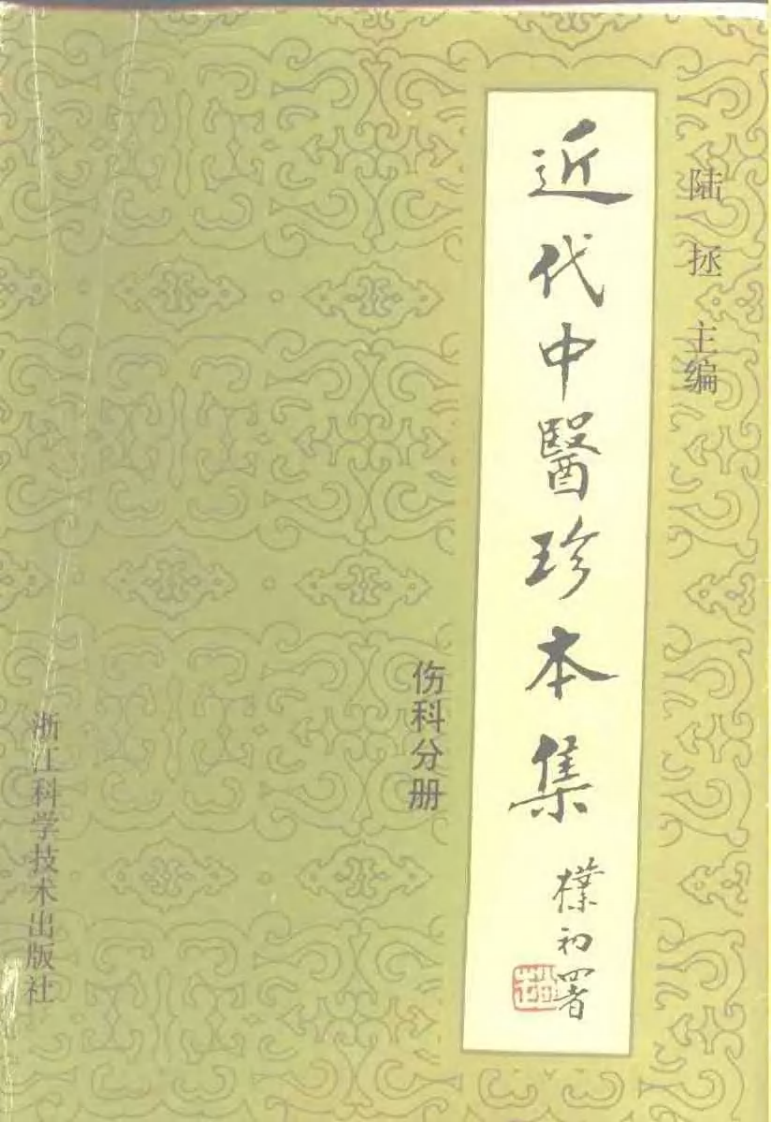 陆拯 主编
近代中醫珍本集
樸初署
趙
伤科分册
浙江科学技术出版社